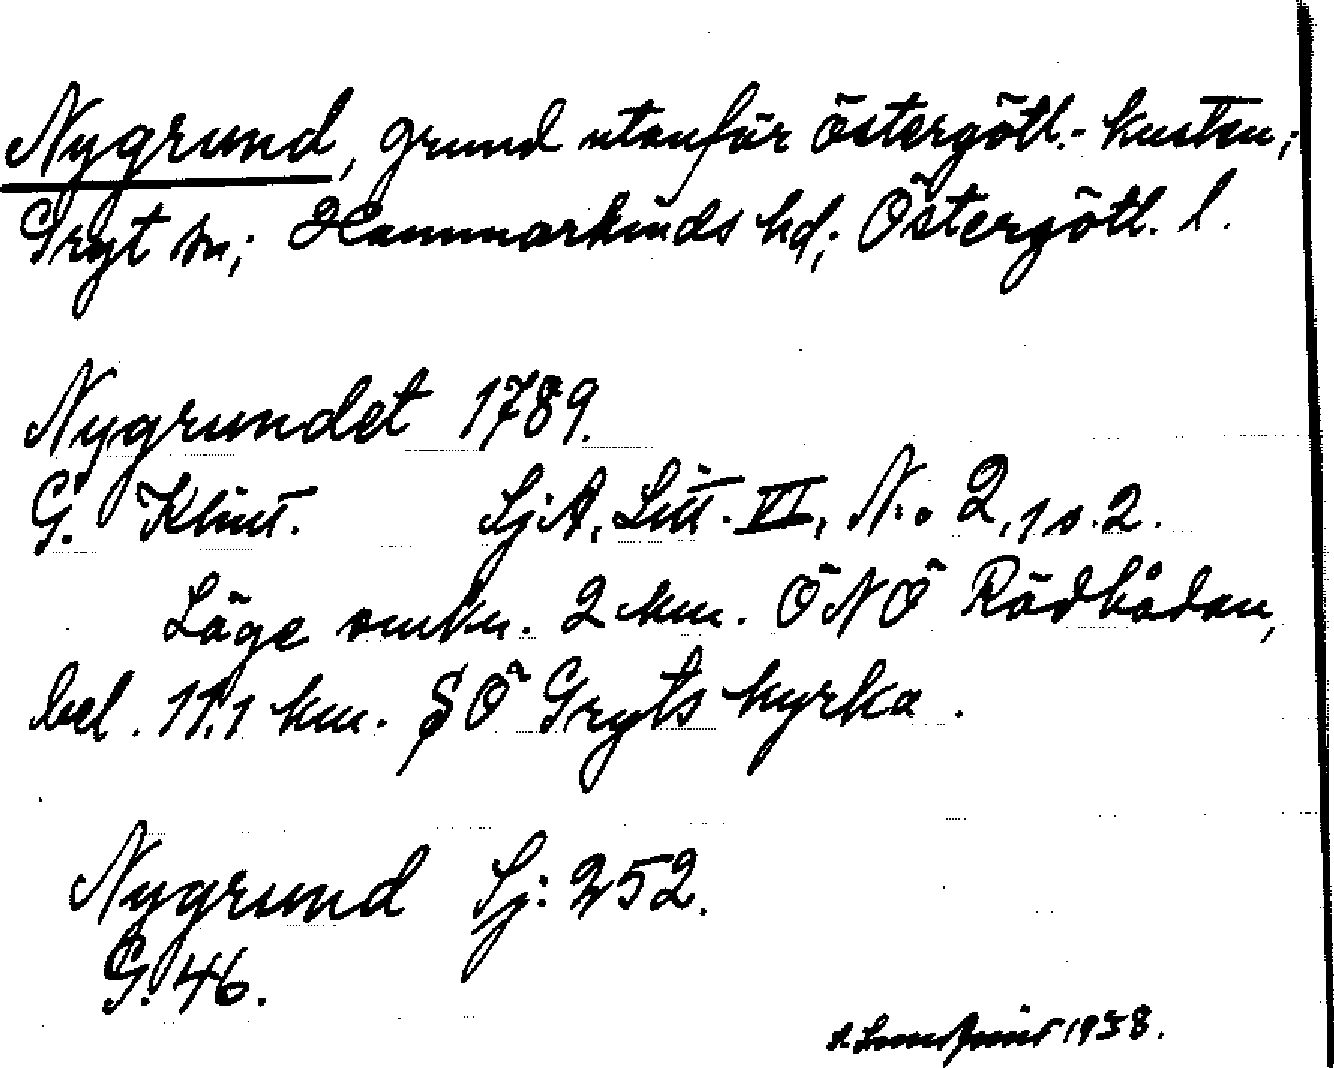 Nygrund, grund utanför östergötl.-kusten;
Gryt sn; Hammarkinds hd; Östergötl. l.
Nygrundet 1789.
G. Klint. SjA, Litt. VI, N:o 2, 1 o. 2.
Läge omkr. 2 km. ÖNÖ Rödbådan,
bel. 11,1 km. SÖ Gryts kyrka.
Nygrund Sj: 252.
G. 46.
1938.